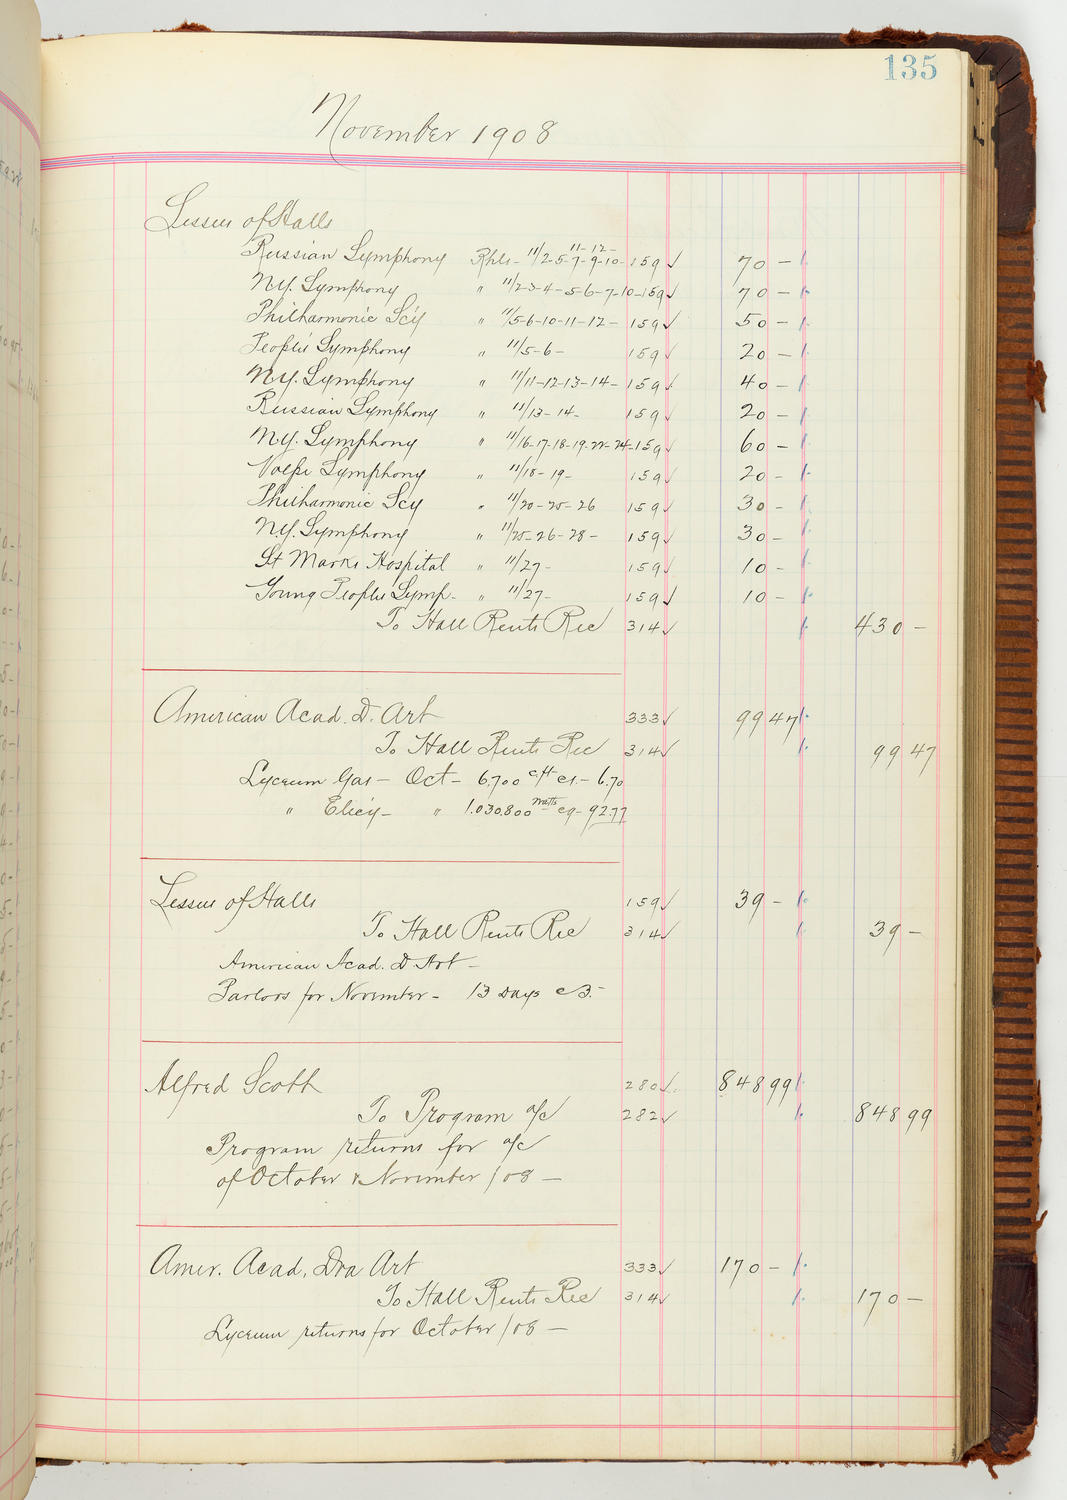 135
November 1908
Lessees of Halls
Russian Symphony Rhls- 11/2-5-7-9-10-11-12- 159 ✓ 70 -
N.Y. Symphony " 11/2-3-4-5-6-7-10- 159 ✓ 70 -
Philharmonic Scy " 11/5-6-10-11-12- 159 ✓ 50 -
Peoples Symphony " 11/5-6- 159 ✓ 20 -
N.Y. Symphony " 11/11-12-13-14- 159 ✓ 40 -
Russian Symphony " 11/13-14- 159 ✓ 20 -
N.Y. Symphony " 11/16-17-18-19-22-24- 159 ✓ 60 -
Volpe Symphony " 11/18-19- 159 ✓ 20 -
Philharmonic Scy " 11/20-25-26 159 ✓ 30 -
N.Y. Symphony " 11/25-26-28- 159 ✓ 30 -
St Marks Hospital " 11/27- 159 ✓ 10 -
Young Peoples Symp. " 11/27- 159 ✓ 10 -
To Hall Rents Rec 314 ✓ 430 -
American Acad. D. Art 333 ✓ 99 47
To Hall Rents Rec 314 ✓ 99 47
Lyceum Gas - Oct - 6.700 cft @1.- 6.70
" Elec'y - " 1.030.800 Watts @9- 92.77
Lessees of Halls 159 ✓ 39 -
To Hall Rents Rec 314 ✓ 39 -
American Acad. D Art -
Parlors for November - 13 Days @3.-
Alfred Scott 280 ✓ 848 99
To Program a/c 282 ✓ 848 99
Program returns for a/c
of October & November /08 -
Amer. Acad, Dra Art 333 ✓ 170 -
To Hall Rents Rec 314 ✓ 170 -
Lyceum returns for October /08 -